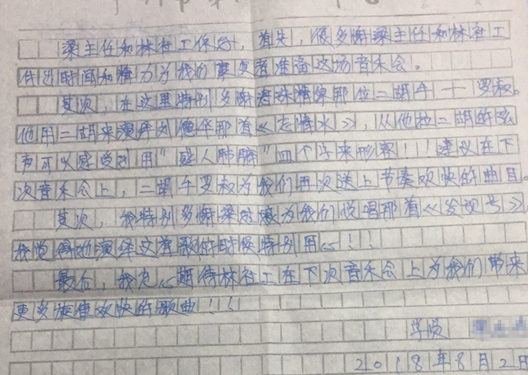 梁主任和林社工你好，首先，很多谢梁主任和林社工
付出时间和精力为我们康复者准备这场音乐会。
其次，在这里特别多谢弹那位二胡手——罗叔。
他用二胡来演奔刘德华那首《忘情水》，从他拉二胡的弦
声可以感觉到用"感人肺腑"四个字来形容！！！建议在下
次音乐会上，二胡手罗叔为我们再次送上节奏欢快的曲目。
其次，我特别多谢梁为我们说唱那首《发现号》，
我觉得她演绎这首歌的时候特别用心！！
最后，我期待林社工在下次音乐会上为我们带来
更多旋律欢快的歌曲！！
学员
2018年8月2日